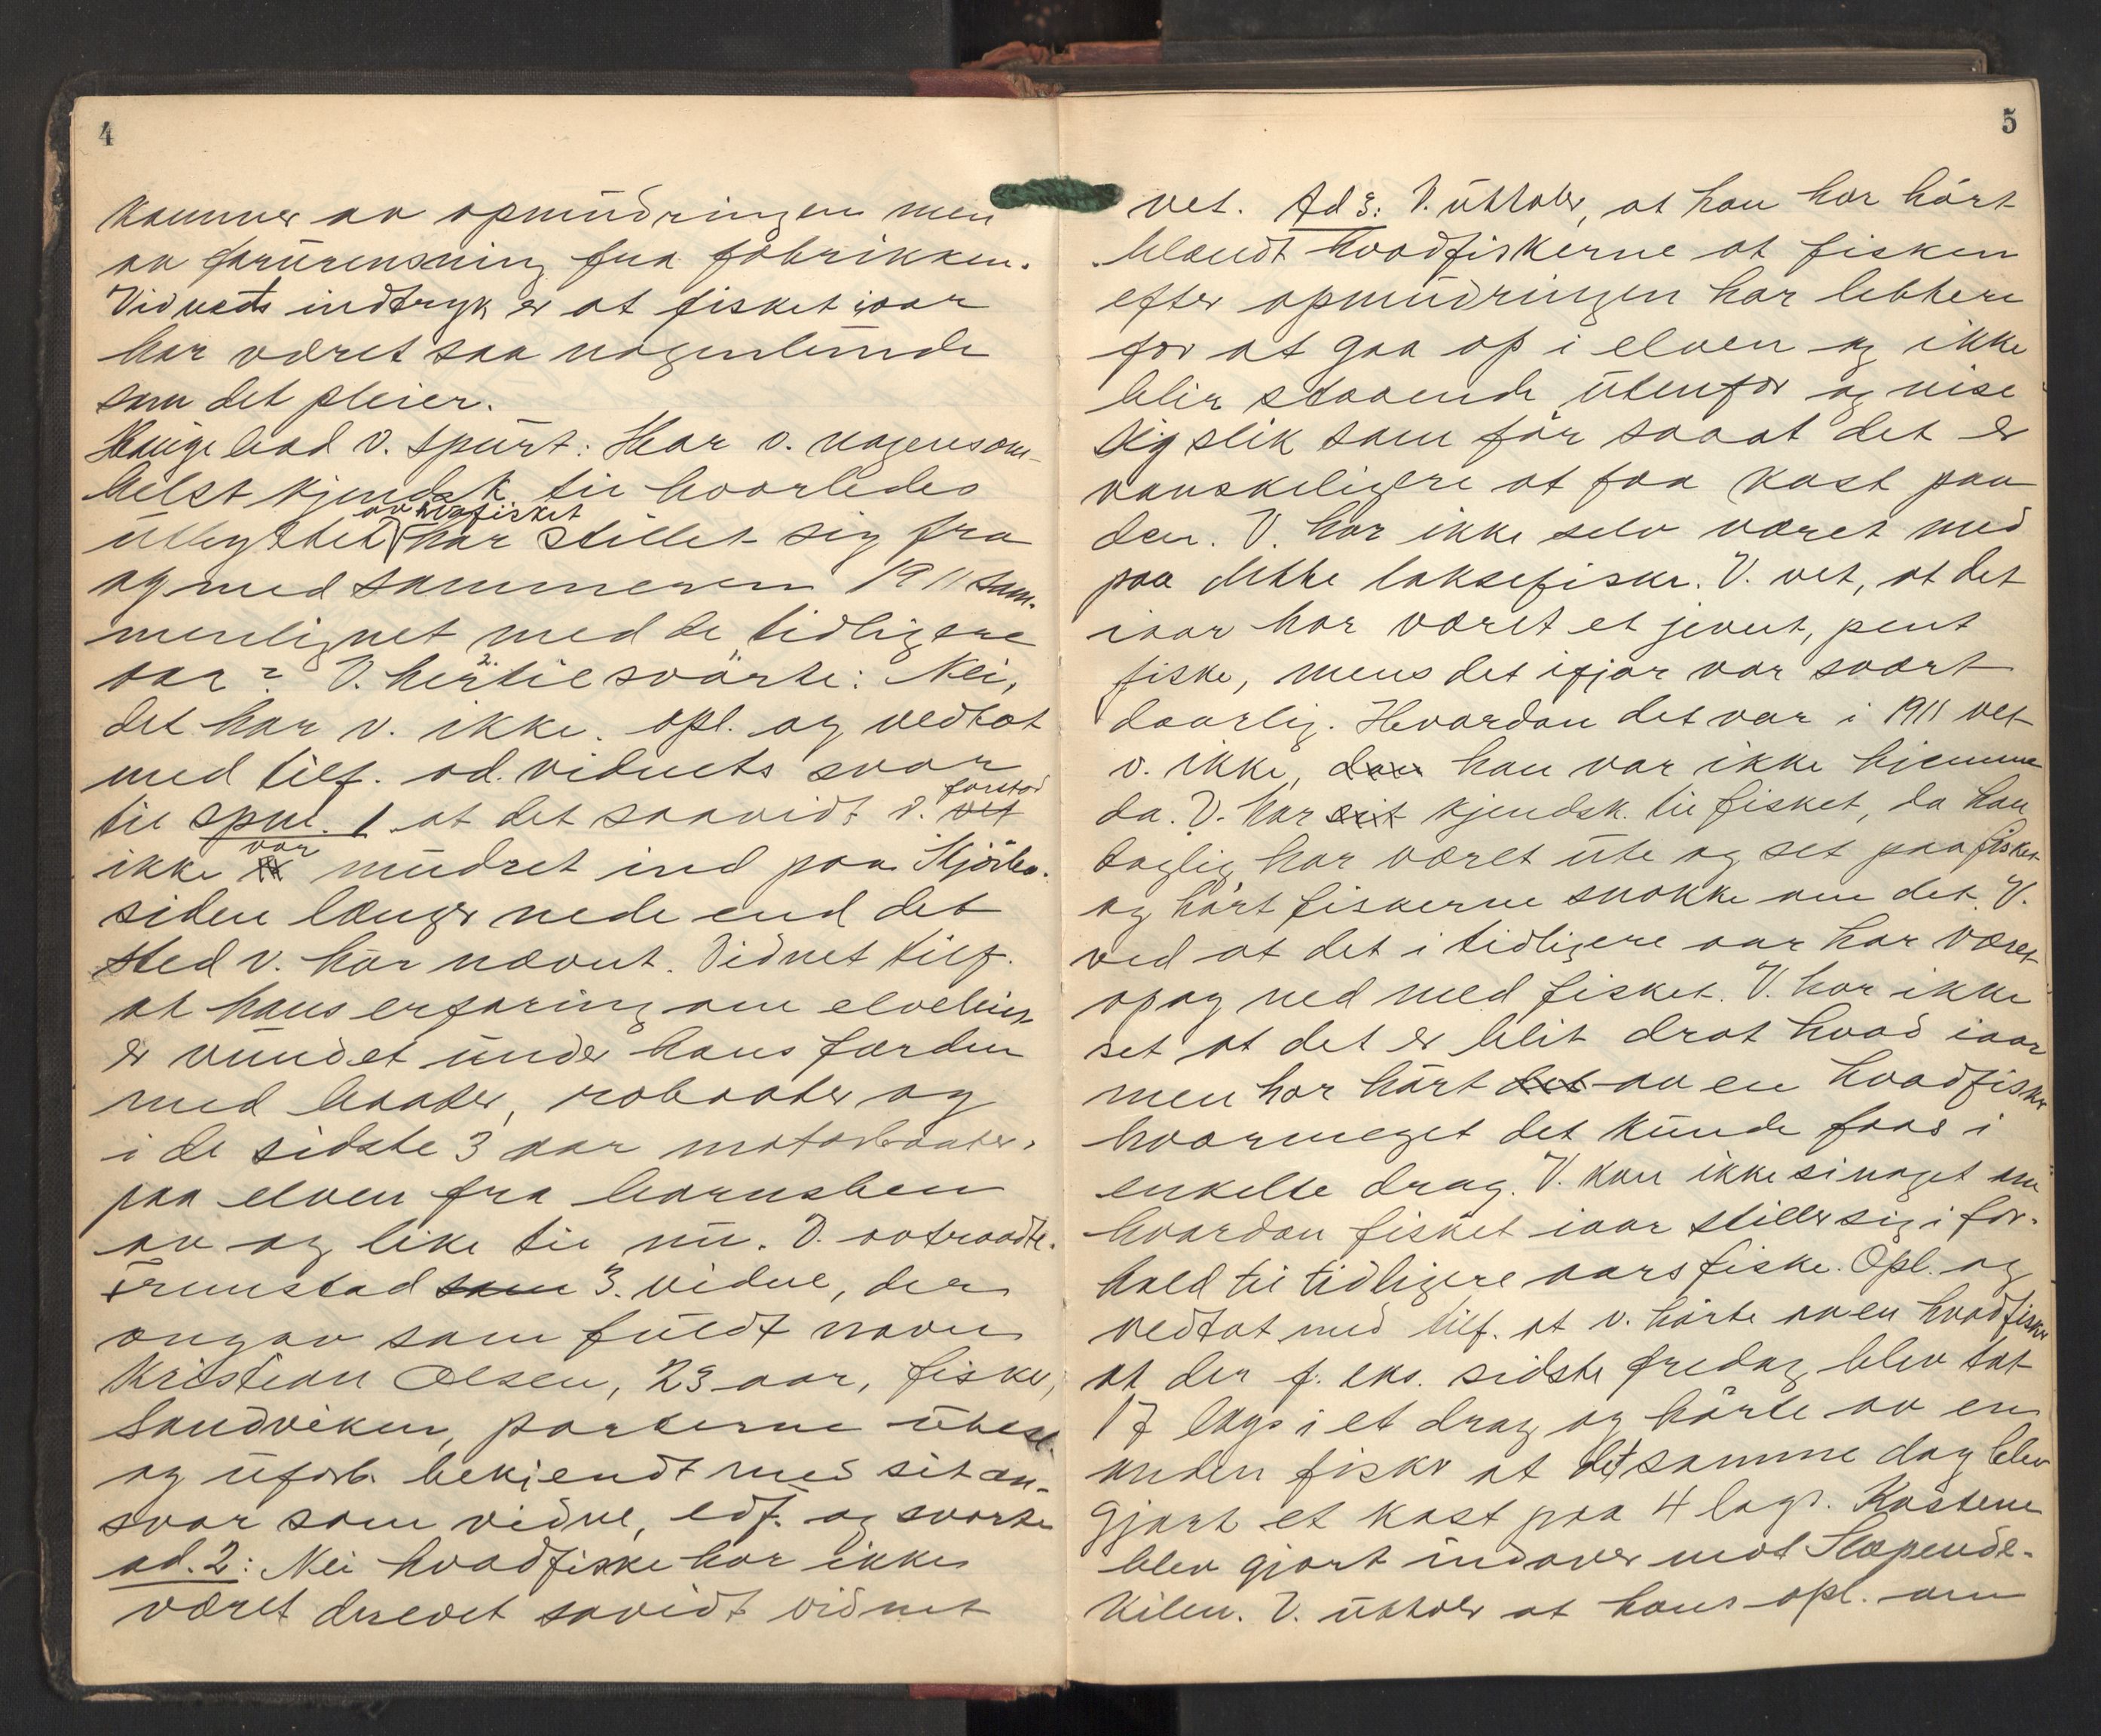 4
kommer av opmudringen men
av forurensning fra fabrikken.
Vidnets indtryk er at fisket iaar
har været saa nogenlunde
som det pleier.
Hauge bad v. spurt: Har v. nogensom-
helst kjendsk. til hvorledes
av hvafisket
utbyttet har stillet sig fra
og med sommeren 1911 sam-
menlignet med de tidligere
aar? V. hertil svarte: Nei,
det har v. ikke. opl. og vedtat
med tilf. ad. vidnets svar
forstod
til spm. 1 at det saavidt v. vet
var
ikke er mudret ind paa Kjörbo-
siden længer nede end det
sted v. har nævnt. Vidnet tilf.
at hans erfaring om elvebun
er vundet under hans færden
med baater, robaater og
i de sidste 3 aar motorbaater.
paa elven fra barnsben
av og like til nu. V. aatraadte.
Frenstad som 3. vidne, der
angav som fuldt navn
Kristian Olsen, 23 aar, fisker,
Sandviken, parterne ubesl.
og uforb. bekjendt med sit an-
svar som vidne, edf. og svarte
ad. 2: Nei hvadfiske har ikke
været drevet savidt vidnet
5
vet. Ad 3: V. uttaler, at han har hört
blandt hvadfiskerne at fisken
efter opmudringen har lettere
for at gaa op i elven og ikke
blir staaende utenfor og vise
sig slik som för saaat det er
vanskeligere at faa kast paa
den. V. har ikke selv været med
paa dette laksefiske. V. vet, at det
iaar har været et jevnt, pent
fiske, mens det ifjor var svært
daarlig. Hvordan det var i 1911 vet
v. ikke, han var ikke hjemme
da. V. har sit kjendsk. til fisket, da han
daglig har været ute og set paa fisket
og hört fiskerne snakke om det. V.
ved at det i tidligere aar har været
op og ned med fisket. V. har ikke
set at det er blit drat hvad iaar
men har hört det av en hvadfisker
hvormeget det kunde faaes i
enkelte drag. V. kan ikke si noget om
hvordan fisket iaar stiller sig i for-
hold til tidligere aars fiske. Opl. og
vedtat med tilf. at v. hörte av en hvadfisker
at der f. eks. sidste fredag blev tat
17 laks i et drag og hörte av en
anden fisker at det samme dag blev
gjort et kast paa 4 laks. Kastene
blev gjort indover mot Slæpende-
kilen. V. uttaler at hans opl. om